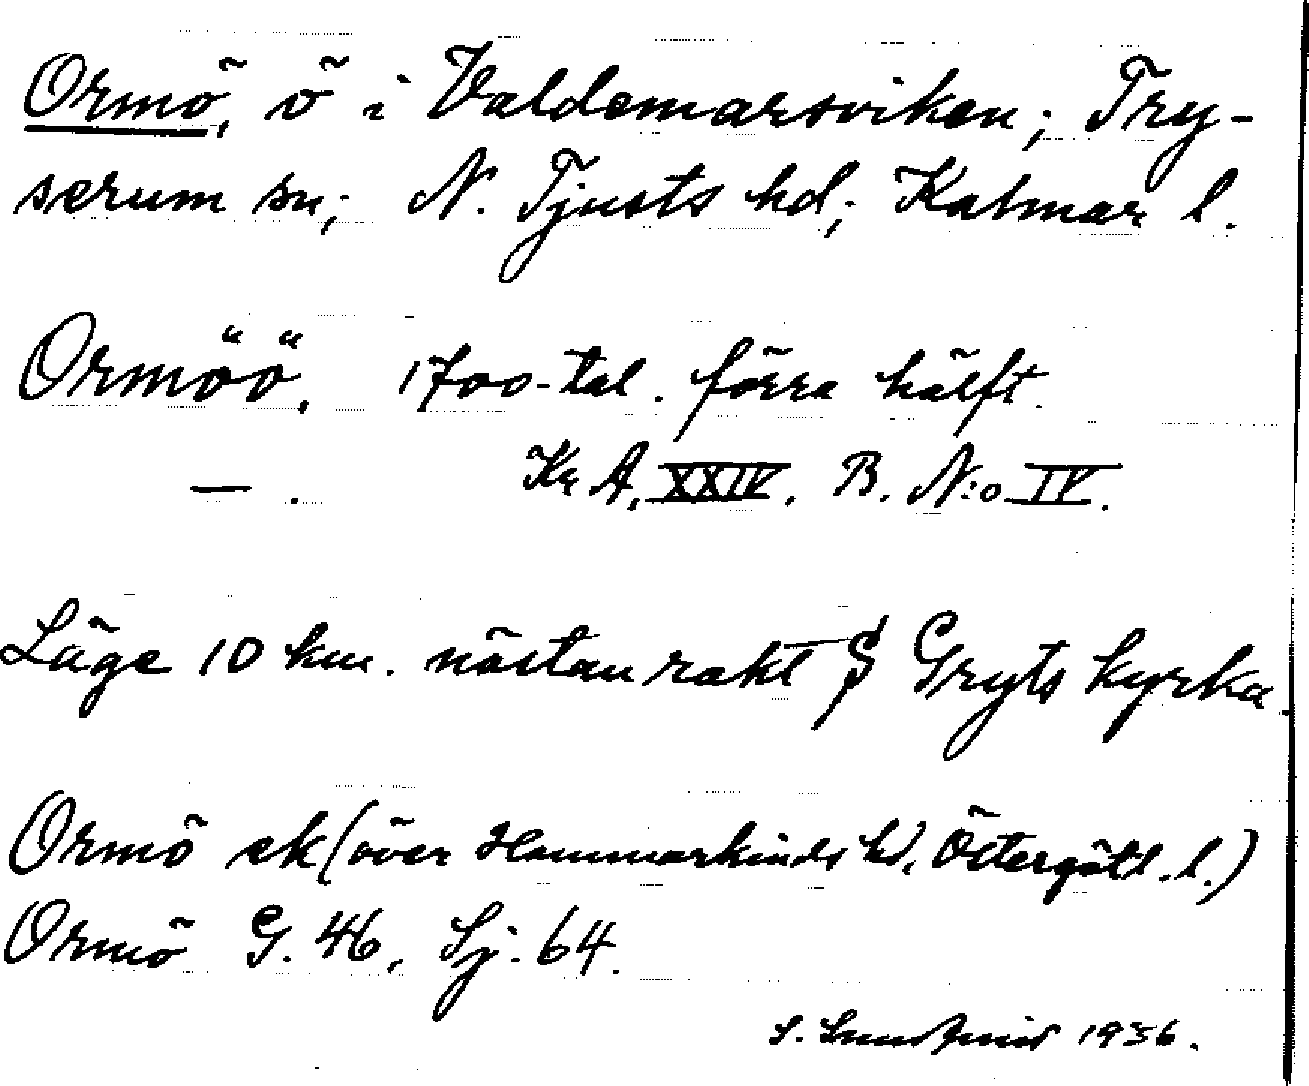 Ormö, ö i Valdemarsviken; Try-
serum sn; N. Tjusts hd; Kalmar l.
Ormöö. 1700-tal. förra hälft.
— . Kr A. XXIV. B. N:o IV.
Läge 10 km. nästan rakt S Gryts kyrka.
Ormö ek (över Hammarkinds hd, Östergötl. l.)
Ormö G. 46, Sj. 64.
S. 1936.